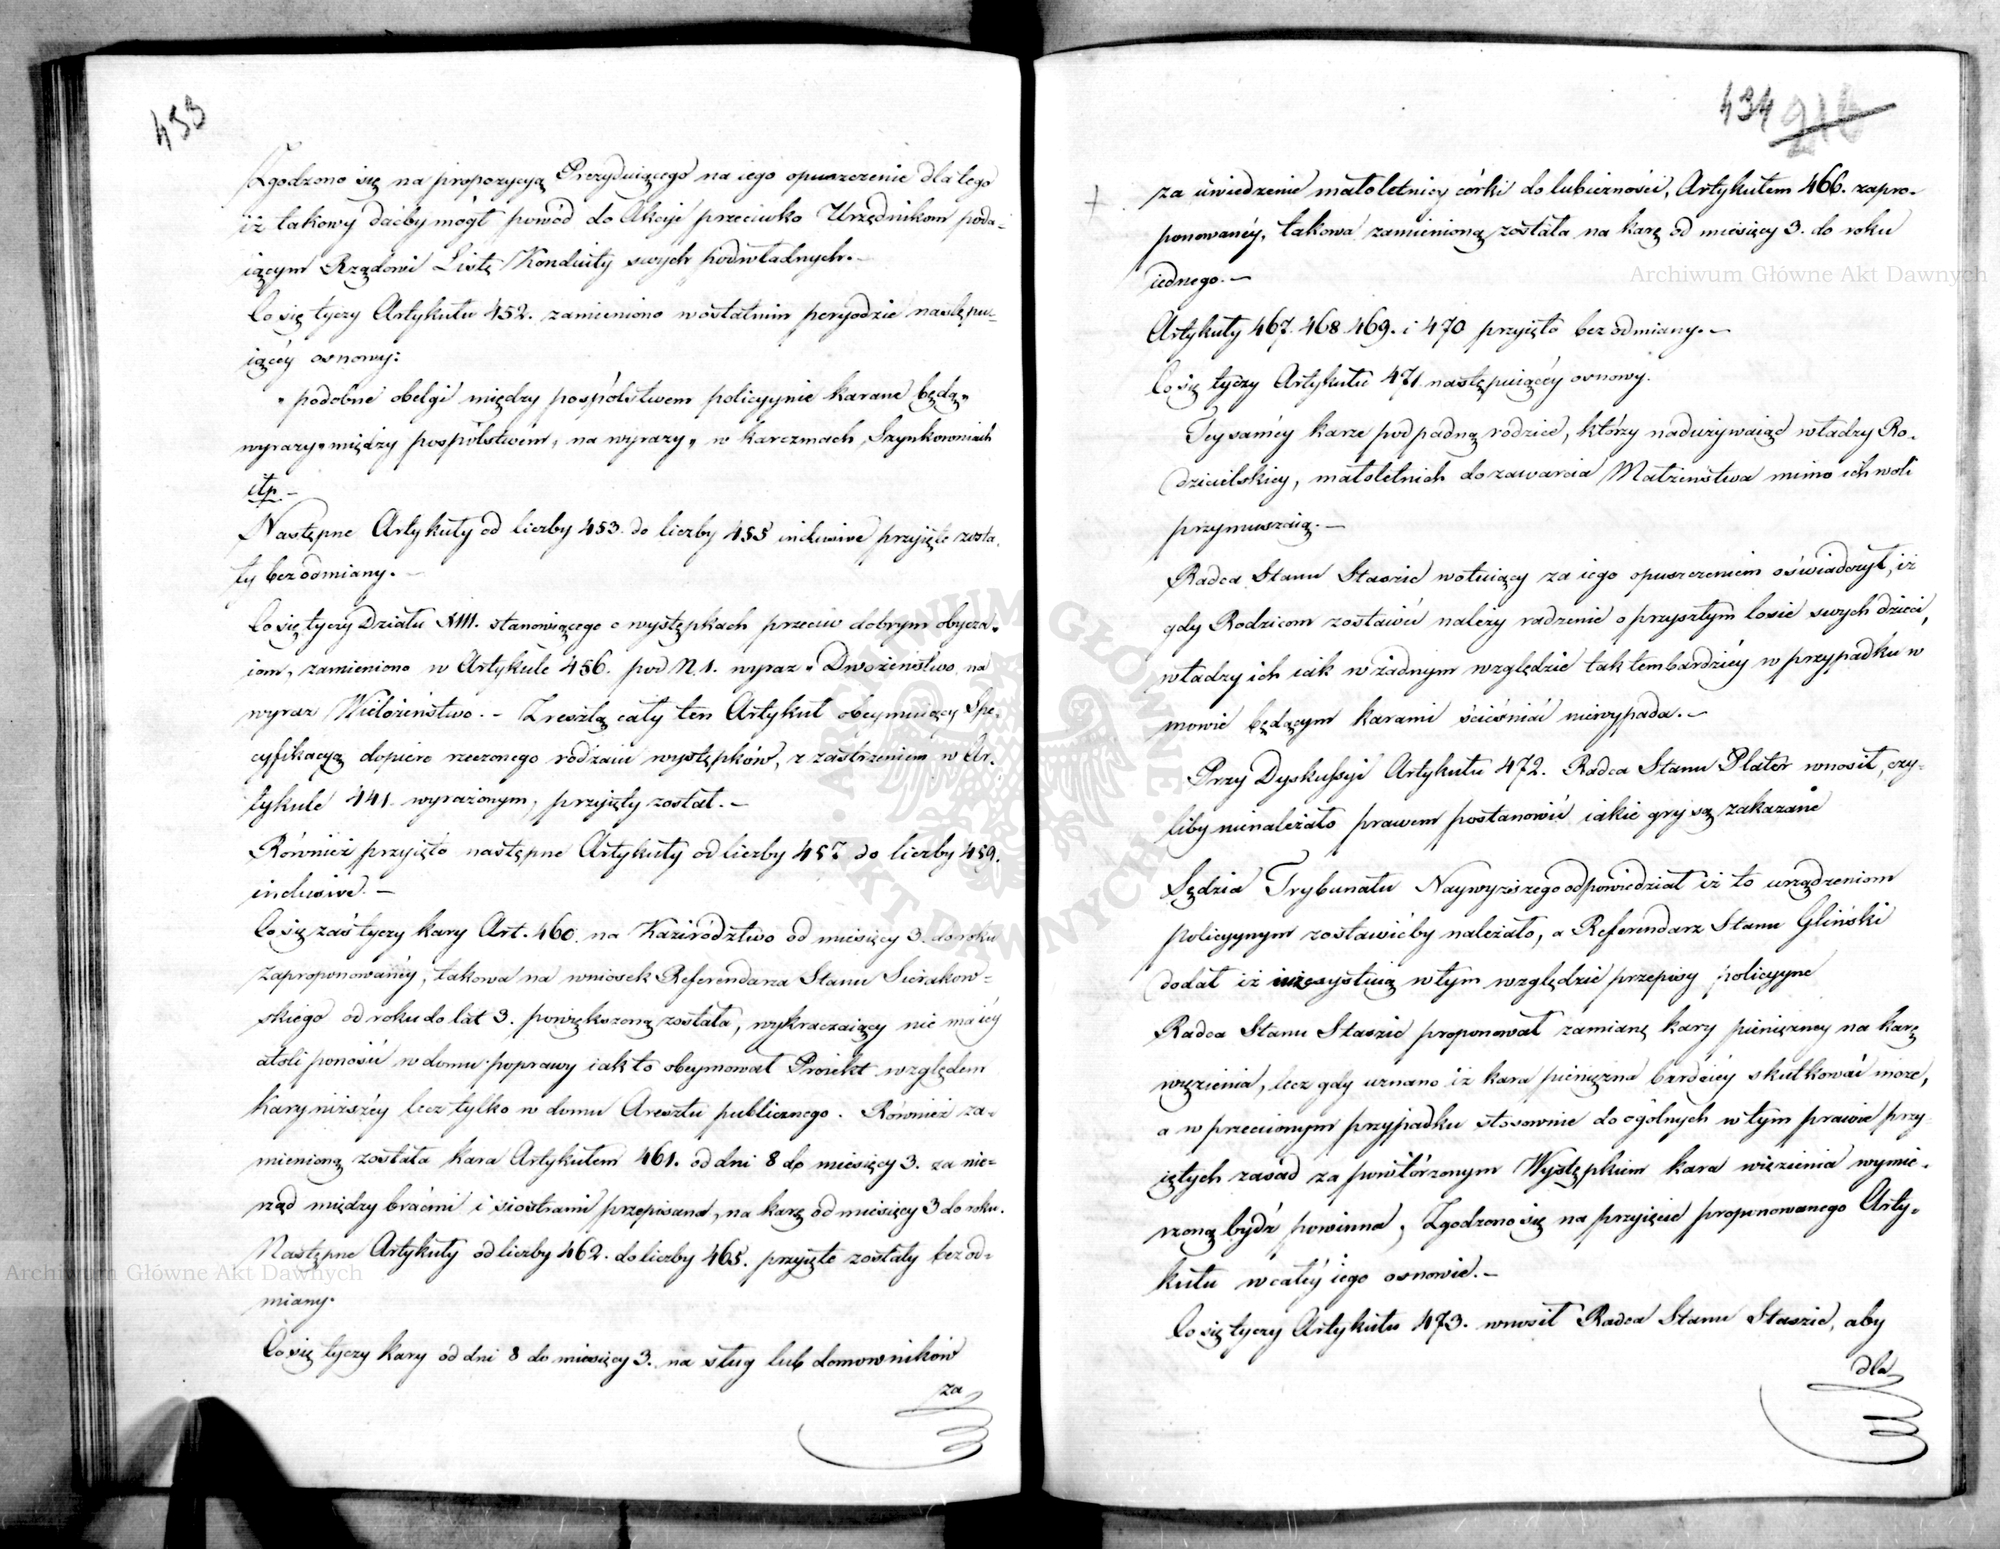 433
Zgodzono się na propozycyą Prezyduiącego na iego opuszczenie dla tego
iż takowy daćby mógł powód do Akcyi przeciwko Urzędnikom poda-
iącym Rządowi Listę Konduity swych podwładnych.-
Co się tyczy Artykułu 452. zamieniono w ostatnim peryodzie następu-
iącéy osnowy:
"podobne obelgi między pospólstwem policyynie karane będą"
wyrazy "między pospólstwem" na wyrazy "w karczmach, Szynkowniach
itp.-
Następne Artykuły od liczby 453. do liczby 455 inclusive przyięte zosta-
ły bez odmiany.-
Co się tyczy Działu XIII. stanowiącego o występkach przeciw dobrym obycza-
iom, zamieniono w Artykule 456. pod N. 1. wyraz "Dwożeństwo na
wyraz Wielożeństwo.- Zresztą cały ten Artykuł obeymuiący Spe-
cyfikacyą dopiero rzeczonego rodzaiu występków, z zastrzeniem w Ar-
tykule 441. wyrażonym, przyięty został.-
Również przyięto następne Artykuły od liczby 457 do liczby 459.
inclusive.-
Co się zaś tyczy kary Art. 460. na Kazirodztwo od miesięcy 3. do roku
zaproponowanéy, takowa na wniosek Referendarza Stanu Sierakow-
skiego od roku do lat 3. powiększoną została, wykraczaiący nie ma iéy
atoli ponosić w domu poprawy iak to obeymował Proiekt względem
kary niższéy lecz tylko w domu Aresztu publicznego. Również za-
mienioną została kara Artykułem 461. od dni 8 do miesięcy 3. za nie-
rząd między braćmi i siostrami przepisana, na karę od miesięcy 3 do roku.
Następne Artykuły od liczby 462. do liczby 465. przyięte zostały bez od-
miany.
Co się tyczy kary od dni 8 do miesięcy 3. na sług lub domowników
za
434 216
+
za uwiedzenie małoletniey córki do lubieżności, Artykułem 466. zapro-
ponowanéy, takowa zamienioną została na karę od miesięcy 3. do roku
iednego.-
Artykuły 467. 468. 469. i 470 przyięto bez odmiany.-
Co się tyczy Artykułu 471. następuiącéy osnowy.
Tey saméy karze podpadną rodzice, którzy nadużywaiąc władzy Ro-
dzicielskiey, małoletnich do zawarcia Małżeństwa mimo ich woli
przymuszaią.-
Radca Stanu Staszic wotuiący za iego opuszczeniem oświadczył, iż
gdy Rodzicom zostawić należy radzenie o przyszłym losie swych dzieci,
władzy ich iak w żadnym względzie tak tem bardziéy w przypadku w
mowie będącym karami ścieśniać niewypada.-
Przy Dyskussyi Artykułu 472. Radca Stanu Plater wnosił, czy-
liby nienależało prawem postanowić iakie gry są zakazane
Sędzia Trybunału Naywyższego odpowiedział iż to urządzeniom
policyynym zostawićby należało, a Referendarz Stanu Gliński
dodał iż iuż exystuią w tym względzie przepisy policyyne
Radca Stanu Staszic proponował zamianę kary pieniężney na karę
więzienia, lecz gdy uznano iż kara pieniężna bardziéy skutkować może,
a w przeciwnym przypadku stosownie do ogólnych w tym prawie przy-
iętych zasad za powtórzonym Występkiem kara więzienia wymie-
rzoną bydź powinna, Zgodzono się na przyięcie proponowanego Arty-
kułu w całéy iego osnowie.-
Co się tyczy Artykułu 473. wnosił Radca Stanu Staszic, aby
dla
Archiwum Główne Akt Dawnych
Archiwum Główne Akt Dawnych
ARCHIWUM GŁÓWNE AKT DAWNYCH